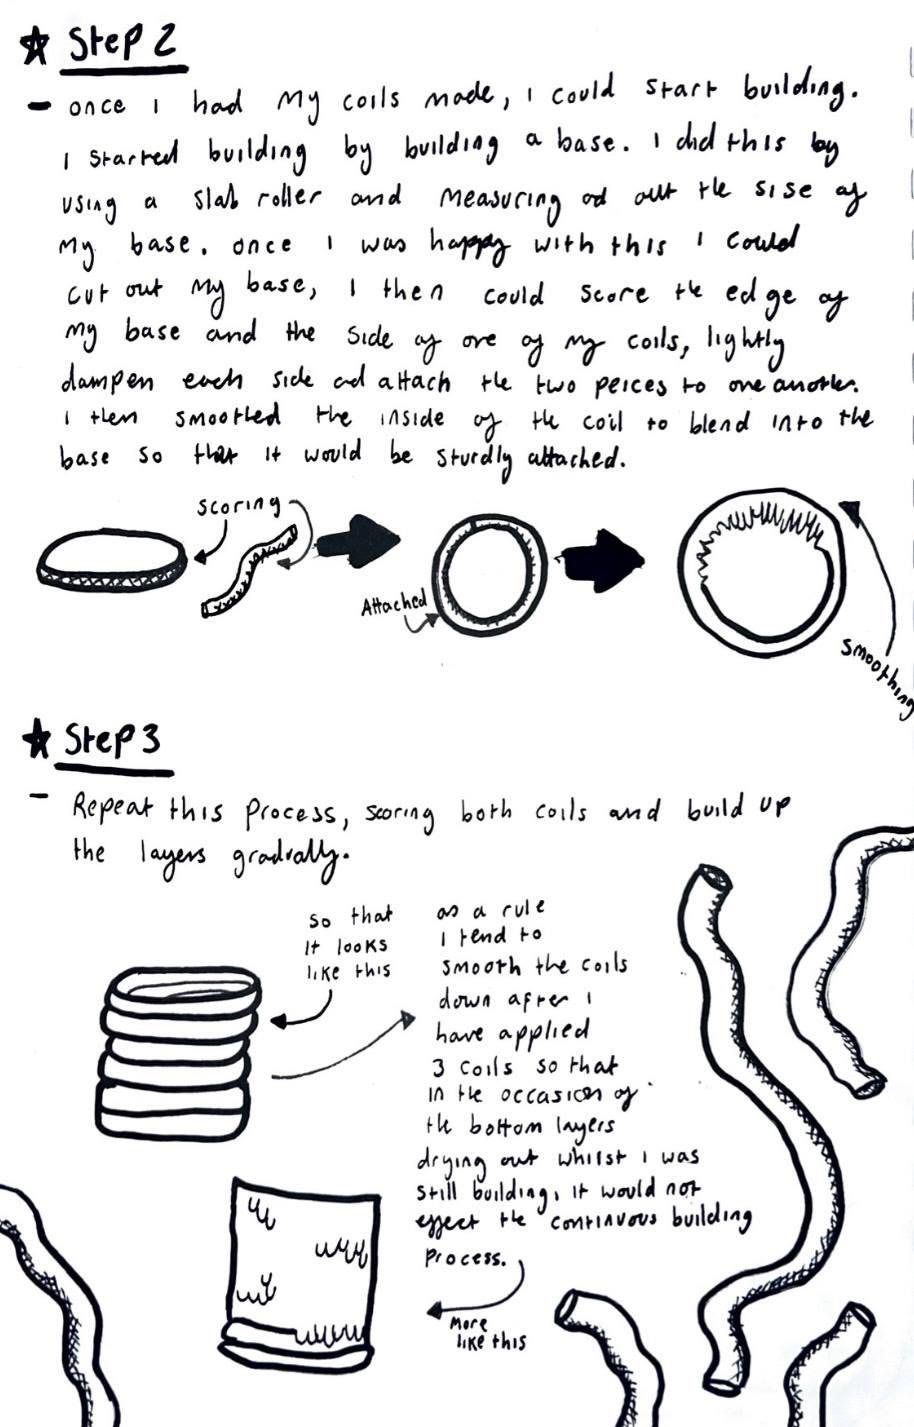 Step 2
- once I had my coils made, I could start building.
I started building by building a base. I did this by
using a slab roller and measuring od out the sise of
my base. once I was happy with this I could
cut out my base, I then could score the edge of
my base and the side of one of my coils, lightly
dampen each side and attach the two peices to one another.
I then smoothed the inside of the coil to blend into the
base so that it would be sturdly attached.
scoring
Attached
smoothing
Step 3
- Repeat this process, scoring both coils and build up
the layers gradually.
so that
it looks
like this
as a rule
I tend to
smooth the coils
down after I
have applied
3 coils so that
in the occasion of
the bottom layers
drying out whilst I was
still building, it would not
effect the continuous building
process.
More
like this